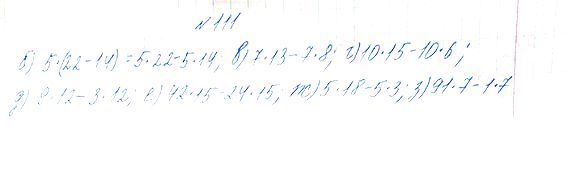 № 111
б) 5·(22-14) = 5·22-5·14, в) 7·13-7·8; г) 10·15-10·6;
д) 9·12-3·12; е) 42·15-24·15; ж) 5·18-5·3, з) 91·7-1·7